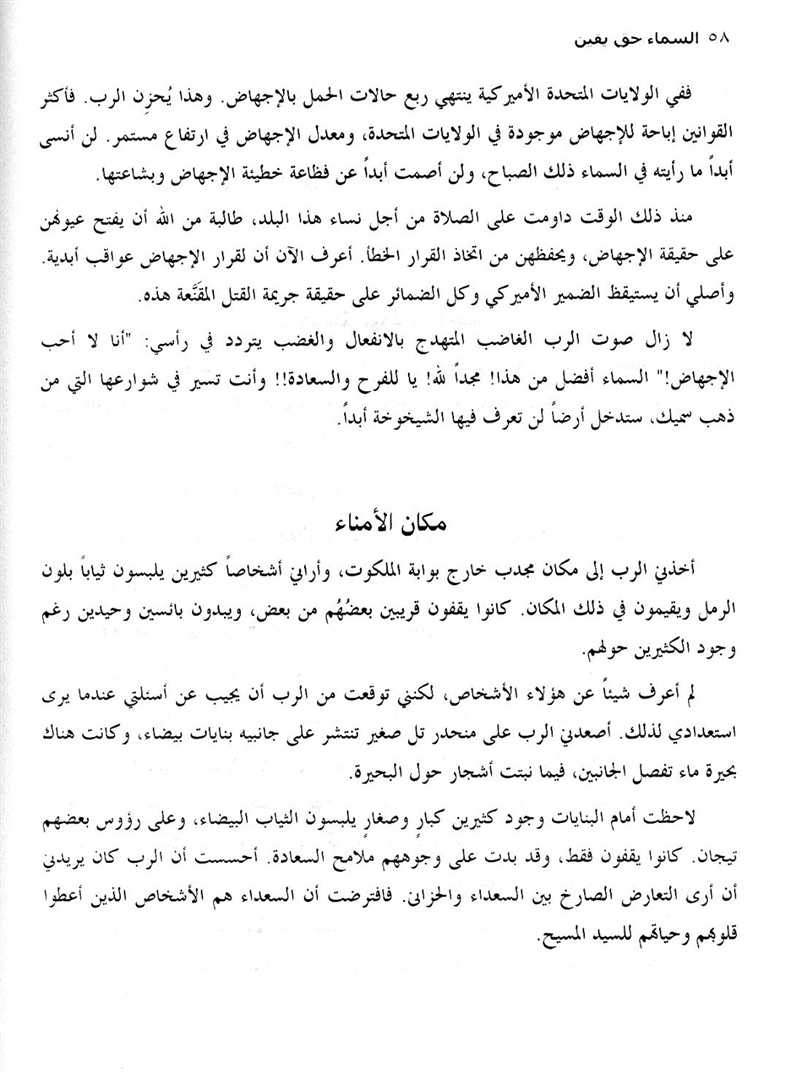 ٥٨ السماء حق يقين
ففي الولايات المتحدة الأميركية ينتهي ربع حالات الحمل بالإجهاض. وهذا يُحزِن الرب. فأكثر
القوانين إباحة للإجهاض موجودة في الولايات المتحدة، ومعدل الإجهاض في ارتفاع مستمر. لن أنسى
أبداً ما رأيته في السماء ذلك الصباح، ولن أصمت أبداً عن فظاعة خطيئة الإجهاض وبشاعتها.
منذ ذلك الوقت داومت على الصلاة من أجل نساء هذا البلد، طالبة من الله أن يفتح عيونهن
على حقيقة الإجهاض، ويحفظهن من اتخاذ القرار الخطأ. أعرف الآن أن لقرار الإجهاض عواقب أبدية.
وأصلي أن يستيقظ الضمير الأميركي وكل الضمائر على حقيقة جريمة القتل المقَنَّعة هذه.
لا زال صوت الرب الغاضب المتهدج بالانفعال والغضب يتردد في رأسي: "أنا لا أحب
الإجهاض!" السماء أفضل من هذا! مجداً لله! يا للفرح والسعادة!! وأنت تسير في شوارعها التي من
ذهب سميك، ستدخل أرضاً لن تعرف فيها الشيخوخة أبداً.
مكان الأمناء
أخذني الرب إلى مكان مجدب خارج بوابة الملكوت، وأراني أشخاصاً كثيرين يلبسون ثياباً بلون
الرمل ويقيمون في ذلك المكان. كانوا يقفون قريبين بعضُهُم من بعض، ويبدون بائسين وحيدين رغم
وجود الكثيرين حولهم.
لم أعرف شيئاً عن هؤلاء الأشخاص، لكنني توقعت من الرب أن يجيب عن أسئلتي عندما يرى
استعدادي لذلك. أصعدني الرب على منحدر تل صغير تنتشر على جانبيه بنايات بيضاء، وكانت هناك
بحيرة ماء تفصل الجانبين، فيما نبتت أشجار حول البحيرة.
لاحظت أمام البنايات وجود كثيرين كبارٍ وصغارٍ يلبسون الثياب البيضاء، وعلى رؤوس بعضهم
تيجان. كانوا يقفون فقط، وقد بدت على وجوههم ملامح السعادة. أحسست أن الرب كان يريدني
أن أرى التعارض الصارخ بين السعداء والحزانى. فافترضت أن السعداء هم الأشخاص الذين أعطوا
قلوبهم وحياتهم للسيد المسيح.